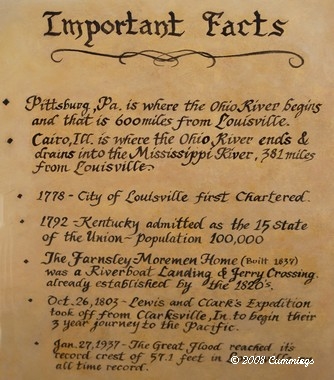 Important Facts
Pittsburg, Pa. is where the Ohio River begins
and that is 600 miles from Louisville.
Cairo, Ill. is where the Ohio River ends &
drains into the Mississippi River, 381 miles
from Louisville.
1778 - City of Louisville first Chartered.
1792 - Kentucky admitted as the 15 State
of the Union - Population 100,000
The Farnsley-Moremen Home (Built 1837)
was a Riverboat Landing & Jerry Crossing
already established by the 1820's.
Oct. 26, 1803 - Lewis and Clark's Expedition
took off from Clarksville, In. to begin their
3 year journey to the Pacific.
Jan. 27, 1937 - The Great Flood reached its
record crest of 57.1 feet in
all time record.
© 2008 Cummings